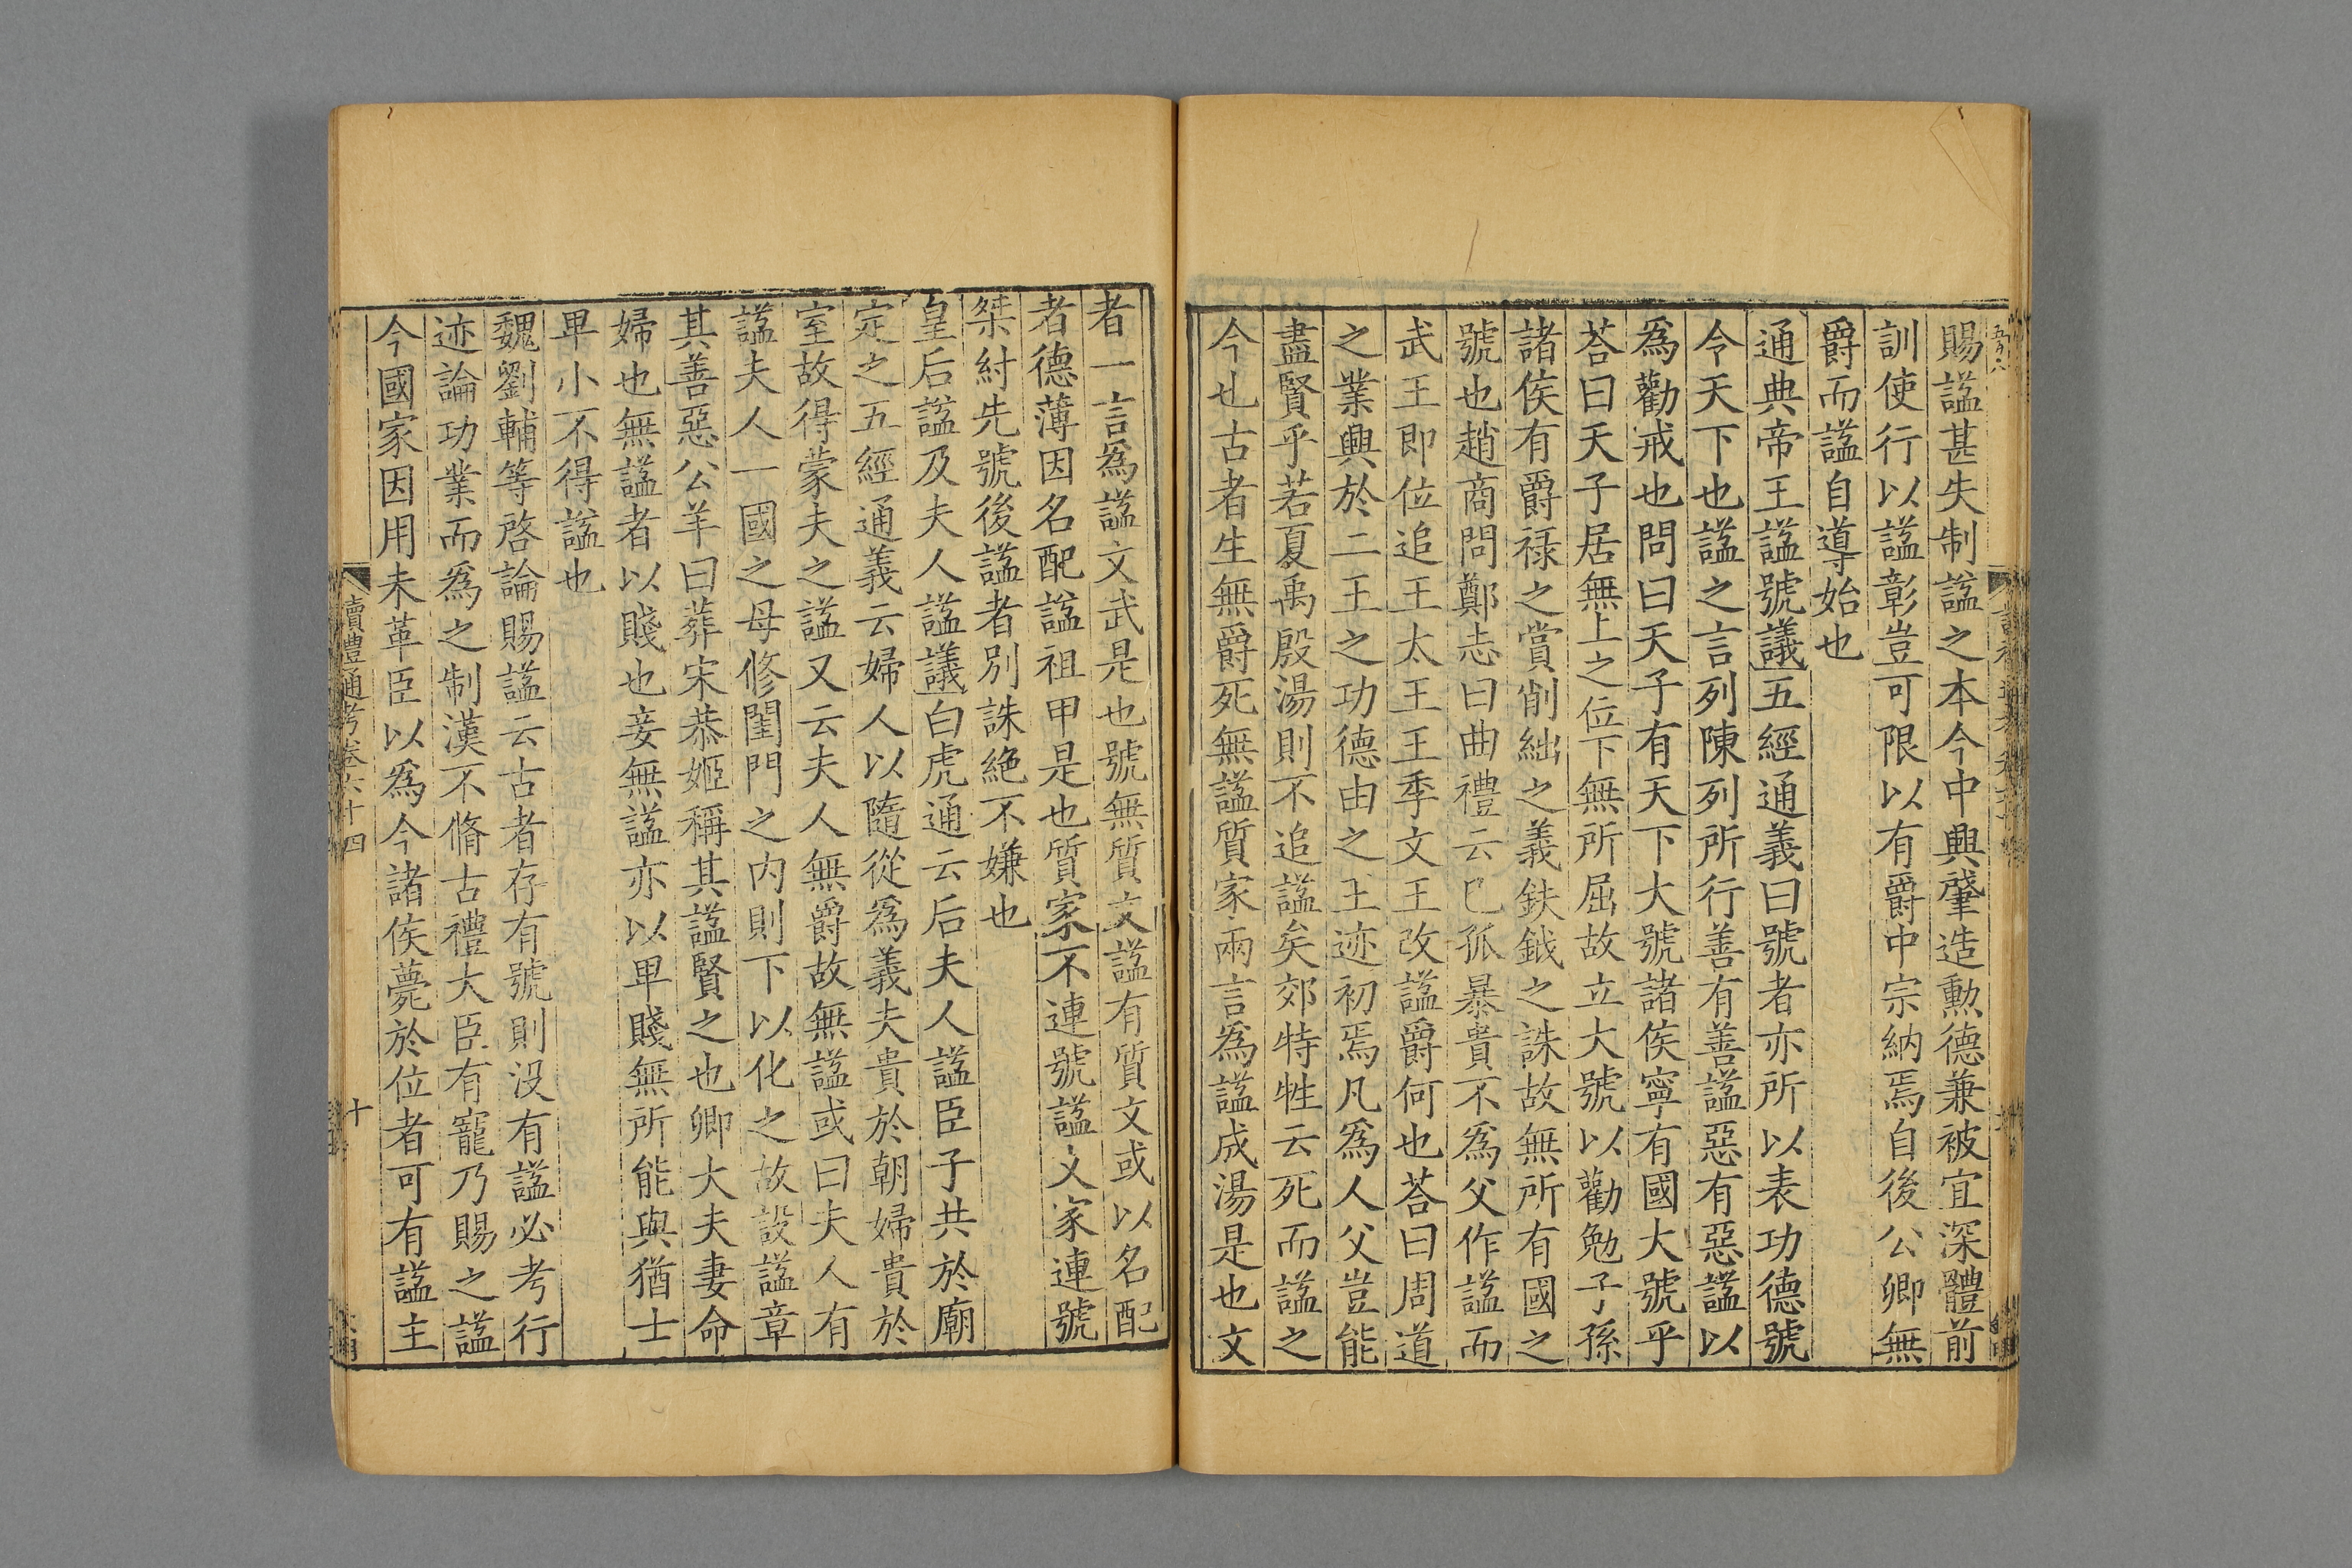 賜諡甚失制諡之本今中興肇造勲德兼被宜深體前
訓使行以諡彰豈可限以有爵中宗納焉自後公卿無
爵而諡自導始也
通典帝王諡號議五經通義曰號者亦所以表功德號
令天下也諡之言列陳列所行善有善諡惡有惡諡以
爲勸戒也問曰天子有天下大號諸侯寧有國大號乎
荅曰天子居無上之位下無所屈故立大號以勸勉子孫
諸侯有爵祿之賞削絀之義鈇鉞之誅故無所有國之
號也趙商問鄭志曰曲禮云已孤暴貴不爲父作諡而
武王即位追王太王王季文王改諡爵何也荅曰周道
之業興於二王之功德由之王迹初焉凡爲人父豈能
盡賢乎若夏禹殷湯則不追諡矣郊特牲云死而諡之
今也古者生無爵死無諡質家兩言爲諡成湯是也文
者一言爲諡文武是也號無質文諡有質文或以名配
者德薄因名配諡祖甲是也質家不連號諡文家連號
桀紂先號後諡者別誅絶不嫌也
皇后諡及夫人諡議白虎通云后夫人諡臣子共於廟
定之五經通義云婦人以隨從爲義夫貴於朝婦貴於
室故得蒙夫之諡又云夫人無爵故無諡或曰夫人有
諡夫人一國之母修閨門之内則下以化之故設諡章
其善惡公羊曰葬宋恭姬稱其諡賢之也卿大夫妻命
婦也無諡者以賤也妾無諡亦以卑賤無所能與猶士
卑小不得諡也
魏劉輔等啓論賜諡云古者存有號則没有諡必考行
迹論功業而爲之制漢不脩古禮大臣有寵乃賜之諡
今國家因用未革臣以爲今諸侯薨於位者可有諡主
讀禮通考卷六十四
十